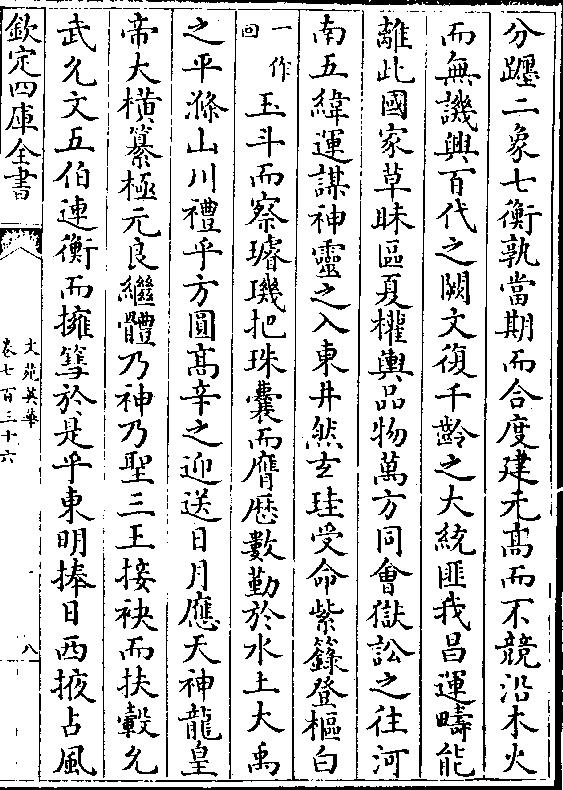 分躔二象七衡孰當期而合度建元高而不競沿木火
而無譏興百代之闕文復千齡之大統匪我昌運疇能
離此國家草昧區夏權輿品物萬方同會獄訟之往河
南五緯運謀神靈之入東井然玄珪受命紫籙登樞白
一作回玉斗而察璿璣把珠囊而膺歴數勤於水土大禹
之平滌山川禮乎方圓髙辛之迎送日月應天神龍皇
帝大橫纂極元良繼體乃神乃聖三王接袂而扶轂允
武允文五伯連衡而擁篲於是乎東明捧日西掖占風
欽定四庫全書
文苑英華
卷七百三十六
八